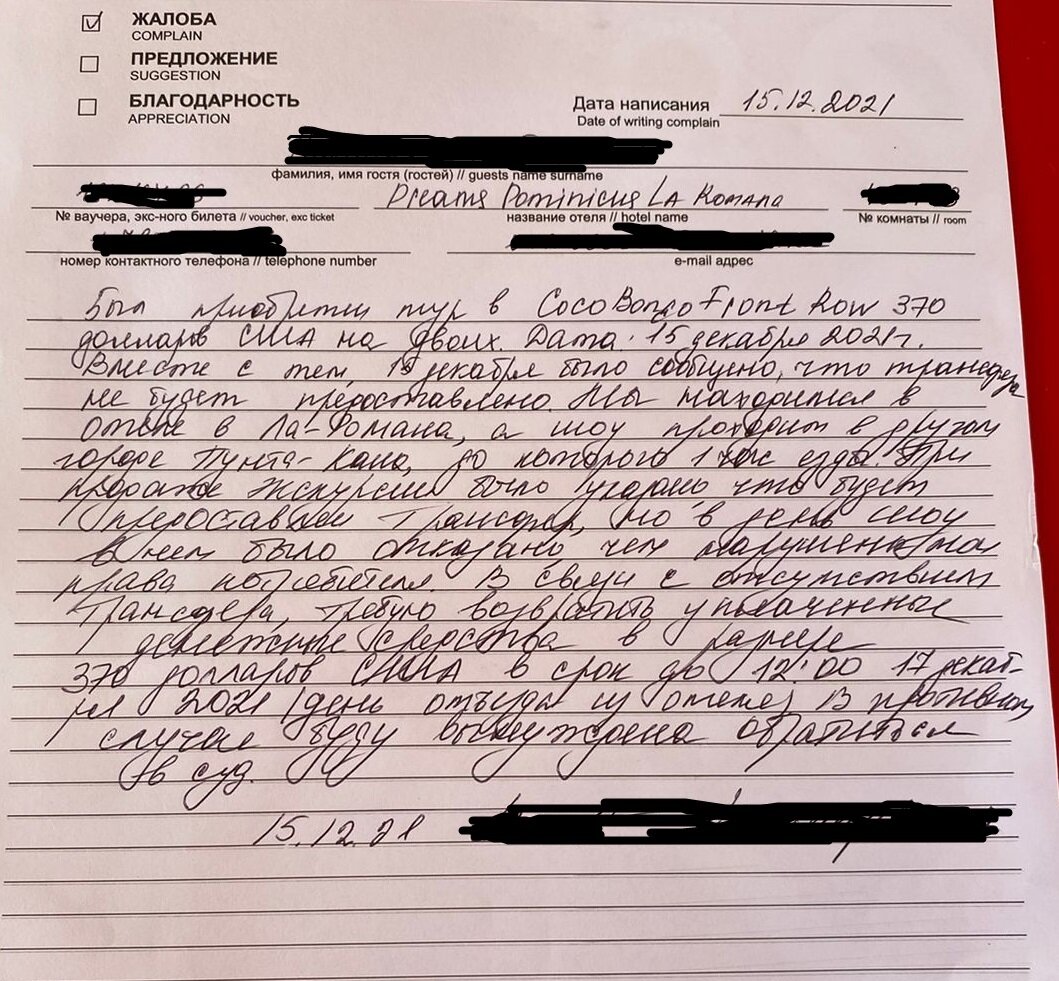 ЖАЛОБА
COMPLAIN
ПРЕДЛОЖЕНИЕ
SUGGESTION
БЛАГОДАРНОСТЬ
APPRECIATION
Дата написания 15.12.2021
Date of writing complain
фамилия, имя гостя (гостей) // guests name surname
Dreams Dominicus La Romana
№ ваучера, экс-ного билета // voucher, exc ticket
название отеля // hotel name
№ комнаты // room
номер контактного телефона // telephone number
e-mail адрес
Был приобретен тур в Coco Bongo Front Row 370
долларов США на двоих. Дата 15 декабря 2021г.
Вместе с тем, 15 декабря было сообщено, что трансфера
не будет предоставлено. Мы находимся в
отеле в Ла-Романа, а шоу проходит в другом
городе Пунта-Кана, до которого 1 час езды. При
продаже экскурсии было указано что будет
предоставлен трансфер, но в день шоу
в нем было отказано чем нарушены мои
права потребителя. В связи с отсутствием
трансфера, требую возвратить уплаченные
денежные средства в размере
370 долларов США в срок до 12:00 17 декаб-
ря 2021 (день отъезда из отеля) В противном
случае буду вынуждена обратиться
в суд.
15.12.21